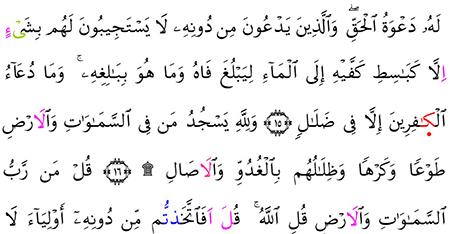 لَهُۥ دَعْوَةُ ٱلْحَقِّۖ وَٱلَّذِينَ يَدْعُونَ مِن دُونِهِۦ لَا يَسْتَجِيبُونَ لَهُم بِشَىْءٍ
اِلَّا كَبَٰسِطِ كَفَّيْهِ إِلَى ٱلْمَآءِ لِيَبْلُغَ فَاهُ وَمَا هُوَ بِبَٰلِغِهِۦۚ وَمَا دُعَآءُ
ٱلْكَٰفِرِينَ إِلَّا فِى ضَلَٰلٍ ۝١٥ وَلِلَّهِ يَسْجُدُ مَن فِى ٱلسَّمَٰوَٰتِ وَٱلَارْضِ
طَوْعًا وَكَرْهًا وَظِلَٰلُهُم بِٱلْغُدُوِّ وَٱلَاصَالِ ۝١٦ ۩ قُلْ مَن رَّبُّ
ٱلسَّمَٰوَٰتِ وَٱلَارْضِ قُلِ ٱللَّهُۚ قُلَ اَفَٱتَّخَذتُّم مِّن دُونِهِۦٓ أَوْلِيَآءَ لَا